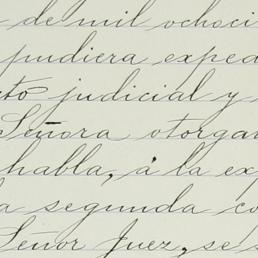 de mil ochoci
pudiera exped
cto judicial y
Señora otorga
habla, á la exp
a segunda co
Señor Juez, se s